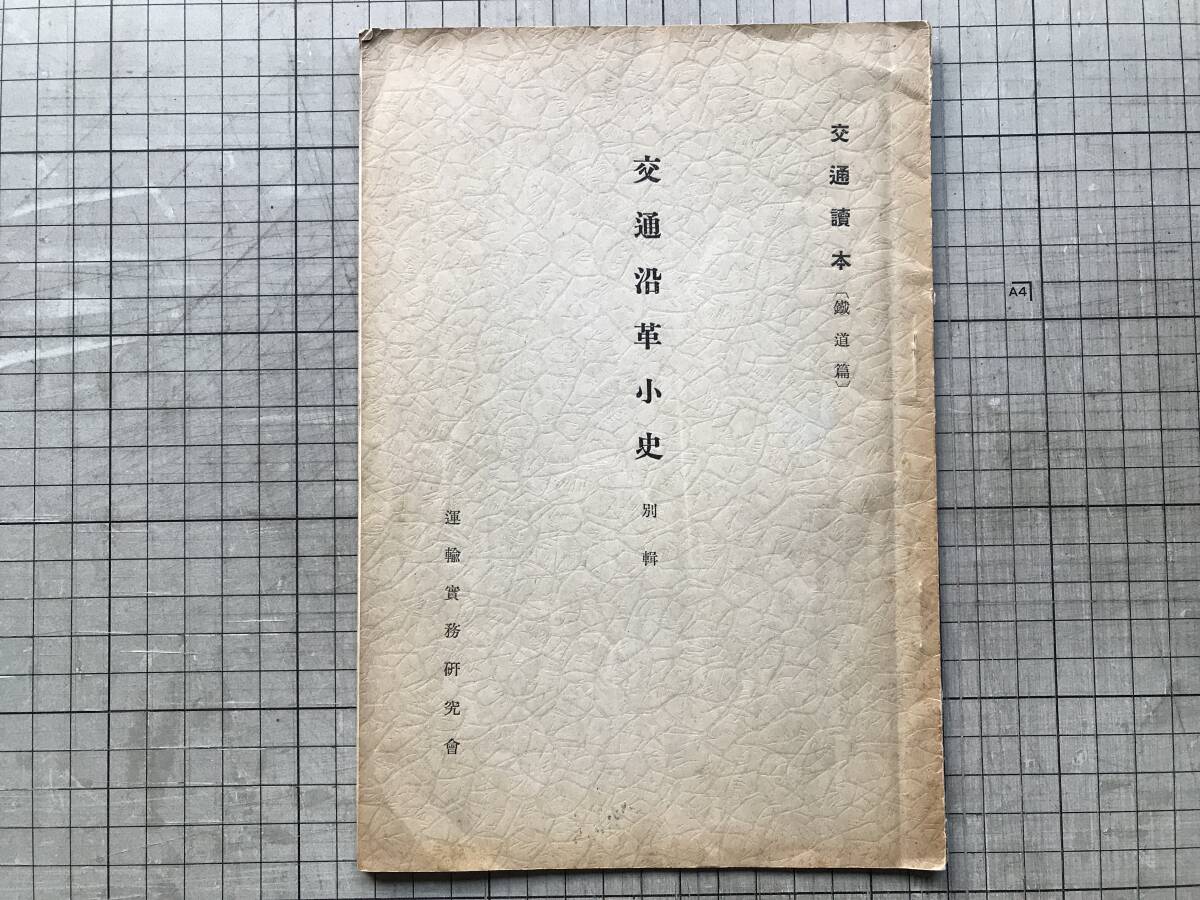 交通讀本〔鐵道篇〕
交通沿革小史 別輯
運輸實務硏究會
A4